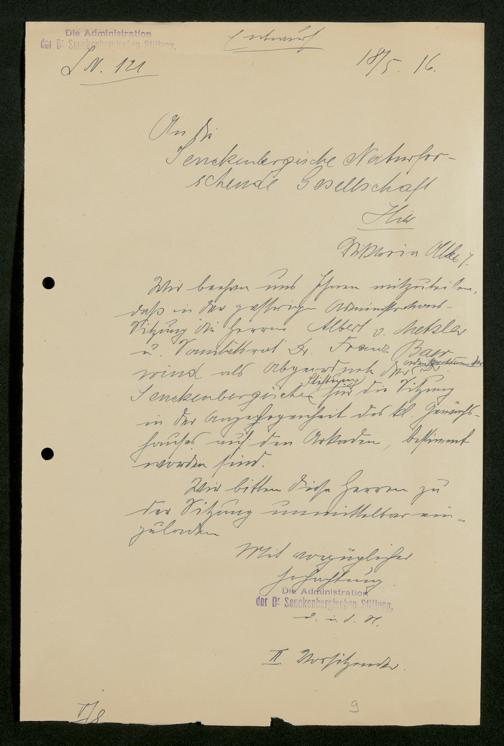 Die Administration
der Dr. Senckenbergischen Stiftung.
Entwurf
18/5. 16.
J.N. 121
An die
Senckenbergische Naturfor-
schende Gesellschaft
Hier
Viktoria Allee 7.
Wir beehren uns Ihnen mitzuteilen,
daß in der gestrigen Administrations-
Sitzung die Herren Albert v. Metzler
u. Sanitätsrat Dr. Franz Baer
als Abgeordnete der
Senckenbergischen Stiftung für die Sitzung
in der Angelegenheit des kl. Gewächs-
hauses auf den Arkaden, bestimmt
worden sind.
Wir bitten diese Herren zu
der Sitzung unmittelbar ein-
zuladen
Mit vorzüglicher
Hochachtung
Die Administration
der Dr. Senckenbergischen Stiftung,
II Vorsitzender.
I/8
9